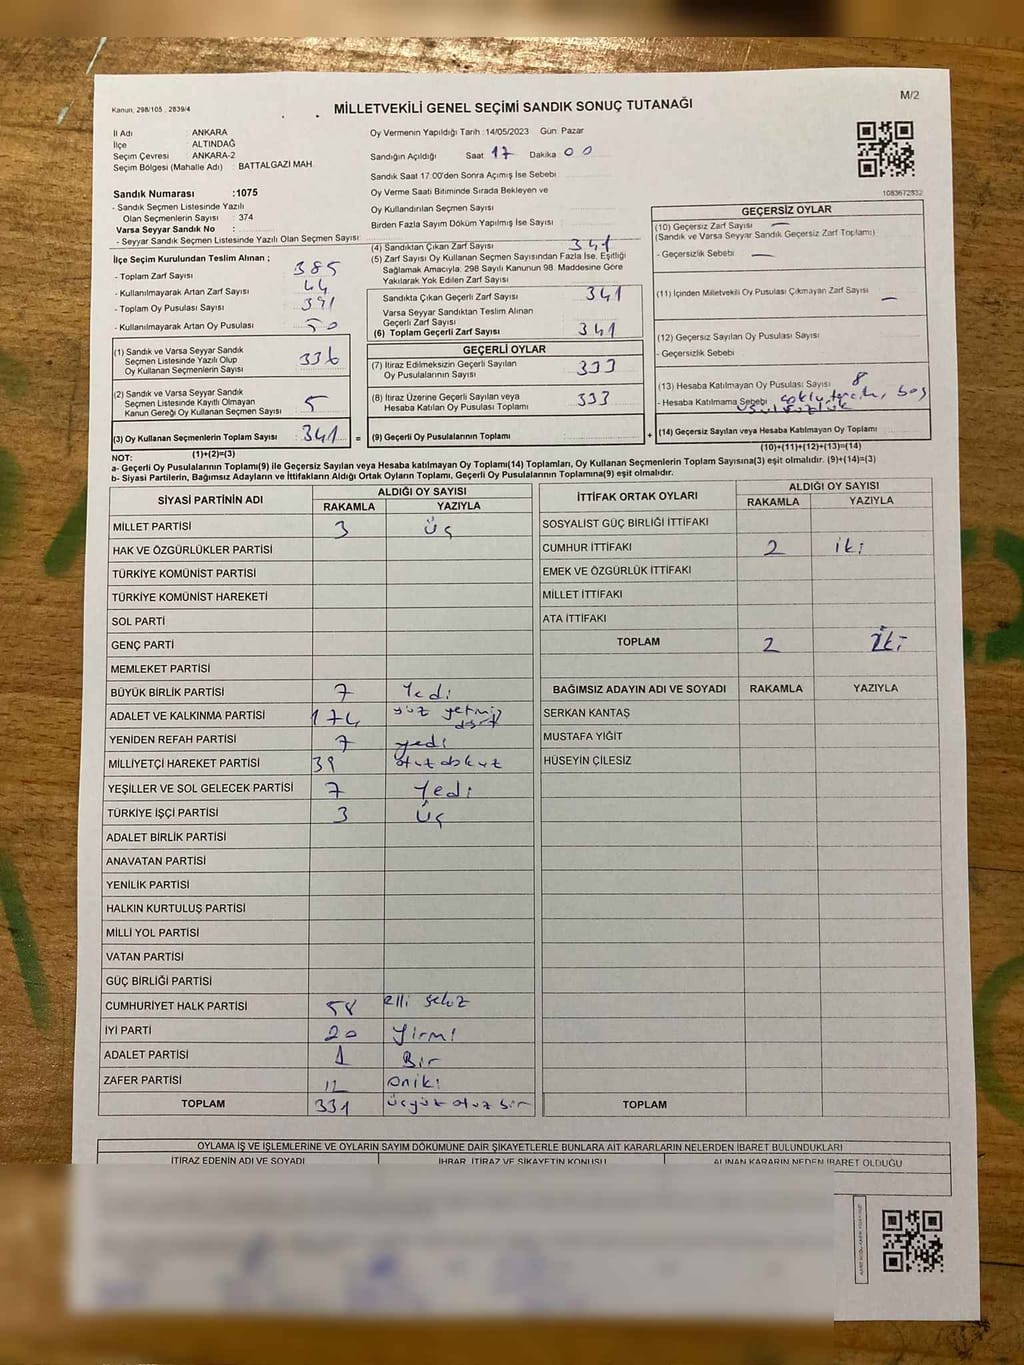 M/2
Kanun: 298/105 , 2839/4
MİLLETVEKİLİ GENEL SEÇİMİ SANDIK SONUÇ TUTANAĞI
İl Adı : ANKARA
İlçe : ALTINDAĞ
Seçim Çevresi : ANKARA-2
Seçim Bölgesi (Mahalle Adı) : BATTALGAZİ MAH.
Sandık Numarası :1075
- Sandık Seçmen Listesinde Yazılı
Olan Seçmenlerin Sayısı : 374
Varsa Seyyar Sandık No :
- Seyyar Sandık Seçmen Listesinde Yazılı Olan Seçmen Sayısı:
Oy Vermenin Yapıldığı Tarih :14/05/2023 Gün: Pazar
Sandığın Açıldığı Saat 17 Dakika 00
Sandık Saat 17:00'den Sonra Açımış İse Sebebi
Oy Verme Saati Bitiminde Sırada Bekleyen ve
Oy Kullandırılan Seçmen Sayısı
Birden Fazla Sayım Döküm Yapılmış İse Sayısı
1083672932
İlçe Seçim Kurulundan Teslim Alınan ;
- Toplam Zarf Sayısı : 385
- Kullanılmayarak Artan Zarf Sayısı : 44
- Toplam Oy Pusulası Sayısı : 391
- Kullanılmayarak Artan Oy Pusulası : 50
(1) Sandık ve Varsa Seyyar Sandık
Seçmen Listesinde Yazılı Olup
Oy Kullanan Seçmenlerin Sayısı 336
(2) Sandık ve Varsa Seyyar Sandık
Seçmen Listesinde Kayıtlı Olmayan
Kanun Gereği Oy Kullanan Seçmen Sayısı 5
(3) Oy Kullanan Seçmenlerin Toplam Sayısı 341 =
(1)+(2)=(3)
(4) Sandıktan Çıkan Zarf Sayısı 341
(5) Zarf Sayısı Oy Kullanan Seçmen Sayısından Fazla İse, Eşitliği
Sağlamak Amacıyla; 298 Sayılı Kanunun 98. Maddesine Göre
Yakılarak Yok Edilen Zarf Sayısı
Sandıkta Çıkan Geçerli Zarf Sayısı 341
Varsa Seyyar Sandıktan Teslim Alınan
Geçerli Zarf Sayısı
(6) Toplam Geçerli Zarf Sayısı 341
GEÇERLİ OYLAR
(7) İtiraz Edilmeksizin Geçerli Sayılan
Oy Pusulalarının Sayısı 333
(8) İtiraz Üzerine Geçerli Sayılan veya
Hesaba Katılan Oy Pusulaları Toplamı 333
(9) Geçerli Oy Pusulalarının Toplamı +
GEÇERSİZ OYLAR
(10) Geçersiz Zarf Sayısı —
(Sandık ve Varsa Seyyar Sandık Geçersiz Zarf Toplamı)
- Geçersizlik Sebebi —
(11) İçinden Milletvekili Oy Pusulası Çıkmayan Zarf Sayısı —
(12) Geçersiz Sayılan Oy Pusulası Sayısı
- Geçersizlik Sebebi
(13) Hesaba Katılmayan Oy Pusulası Sayısı 8
- Hesaba Katılmama Sebebi çoklu tercih, boş
usulsüzlük
(14) Geçersiz Sayılan veya Hesaba Katılmayan Oy Toplamı
(10)+(11)+(12)+(13)=(14)
NOT:
a- Geçerli Oy Pusulalarının Toplamı(9) ile Geçersiz Sayılan veya Hesaba katılmayan Oy Toplamı(14) Toplamları, Oy Kullanan Seçmenlerin Toplam Sayısına(3) eşit olmalıdır. (9)+(14)=(3)
b- Siyasi Partilerin, Bağımsız Adayların ve İttifakların Aldığı Ortak Oyların Toplamı, Geçerli Oy Pusulalarının Toplamına(9) eşit olmalıdır.
SİYASİ PARTİNİN ADI ALDIĞI OY SAYISI
RAKAMLA YAZIYLA
MİLLET PARTİSİ 3 üç
HAK VE ÖZGÜRLÜKLER PARTİSİ
TÜRKİYE KOMÜNİST PARTİSİ
TÜRKİYE KOMÜNİST HAREKETİ
SOL PARTİ
GENÇ PARTİ
MEMLEKET PARTİSİ
BÜYÜK BİRLİK PARTİSİ 7 Yedi
ADALET VE KALKINMA PARTİSİ 174 yüz yetmiş
dört
YENİDEN REFAH PARTİSİ 7 yedi
MİLLİYETÇİ HAREKET PARTİSİ 39 otuz dokuz
YEŞİLLER VE SOL GELECEK PARTİSİ 7 Yedi
TÜRKİYE İŞÇİ PARTİSİ 3 Üç
ADALET BİRLİK PARTİSİ
ANAVATAN PARTİSİ
YENİLİK PARTİSİ
HALKIN KURTULUŞ PARTİSİ
MİLLİ YOL PARTİSİ
VATAN PARTİSİ
GÜÇ BİRLİĞİ PARTİSİ
CUMHURİYET HALK PARTİSİ 58 elli sekiz
İYİ PARTİ 20 Yirmi
ADALET PARTİSİ 1 Bir
ZAFER PARTİSİ 12 oniki
TOPLAM 331 üçyüz otuz bir
İTTİFAK ORTAK OYLARI ALDIĞI OY SAYISI
RAKAMLA YAZIYLA
SOSYALİST GÜÇ BİRLİĞİ İTTİFAKI
CUMHUR İTTİFAKI 2 iki
EMEK VE ÖZGÜRLÜK İTTİFAKI
MİLLET İTTİFAKI
ATA İTTİFAKI
TOPLAM 2 İki
BAĞIMSIZ ADAYIN ADI VE SOYADI RAKAMLA YAZIYLA
SERKAN KANTAŞ
MUSTAFA YİĞİT
HÜSEYİN ÇİLESİZ
TOPLAM
OYLAMA İŞ VE İŞLEMLERİNE VE OYLARIN SAYIM DÖKÜMÜNE DAİR ŞİKAYETLERLE BUNLARA AİT KARARLARIN NELERDEN İBARET BULUNDUKLARI
İTİRAZ EDENİN ADI VE SOYADI İHBAR, İTİRAZ VE ŞİKAYETİN KONUSU ALINAN KARARIN NEDEN İBARET OLDUĞU